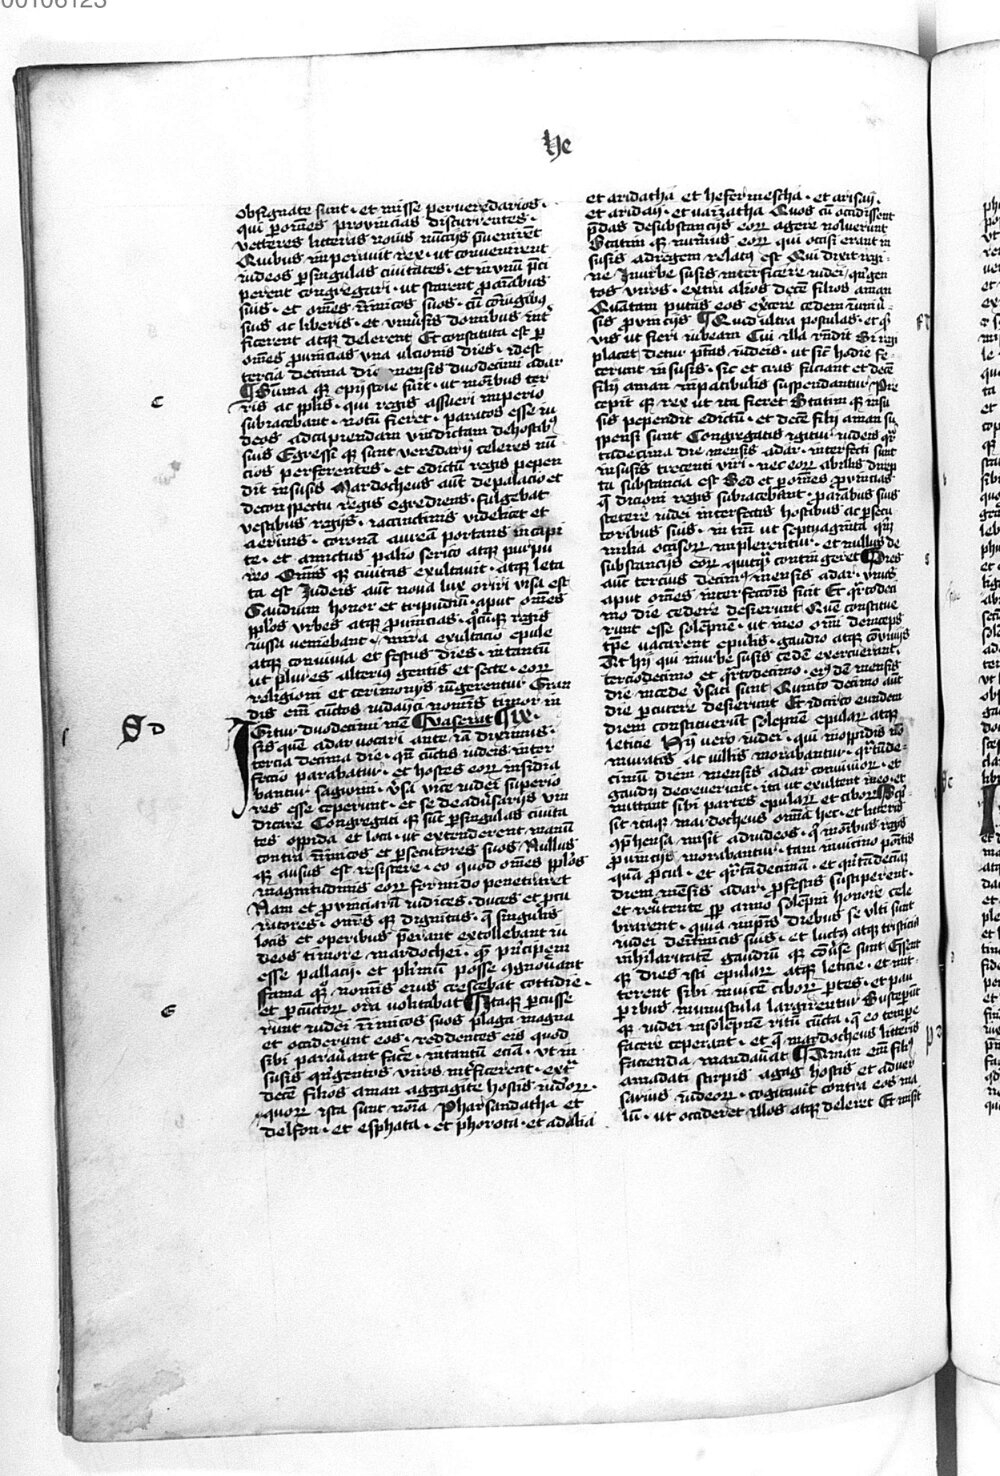 00106123
he
obsignate sunt · et misse per veredarios ·
qui p om̄es provincias discurrentes ·
vetteres litteras novis nūcijs p̄venirēt
Quibus imperavit rex · ut convenirent
iudeos p singulas civitates · et in vnū p̄ci
perent congregari · ut starent p aīabus
suis · et om̄es īimicos suos · cū coniugibus
suis ac liberis · et vniūsis domibus int̄
ficerent atq̄ delerent Et constituta est p
om̄es p̄vincias vna ulcionis dies · idest
tercia decima die mensis duodecimi adar
Sūma q̄ epistole fuit · ut om̄ibus ter
ris ac pplis · qui regis assueri imperio
subiacebant · notū fieret · paratos esse iu
deos ad capiendam vindictam de hostibus
suis Egressi q̄ sunt veredarij celeres nū
cios perferentes · et edictū regis pepen
dit in susis Mardocheus aūt de palacio et
de conspectu regis egrediens · fulgebat
vestibus regijs · iacinctinis videlicet et
aerinis · coronā aureā portans in capi
te · et amictus palio serico atq̄ purpu
reo Om̄is q̄ civitas exultavit · atq̄ leta
ta est Iudeis aūt nova lux oriri visa est
Gaudium honor et tripudiū · aput om̄es
pplos vrbes atq̄ p̄vincias · q̄cūq̄ regis
iussa veniebant · mira exultacio epule
atq̄ convivia et festus dies · in tantū
ut plures alterius gentis et secte · eoꝝ
religioni et cerimonijs iūgerentur Gran
dis em̄ cūctos iudayci nomīs timor in
vaserat IX ·
Igitur duodecimi mēs
sis quē adar vocari ante iā diximus ·
tercia decima die · qn̄ cūctis iudeis inter
fectio parabatur · et hostes eoꝝ insidia
bantur sagwini · v̄sa vice iudei superio
res esse ceperunt · et se de adūsarijs vin
dicare Congregati q̄ sūt p singulas civita
tes oppida et loca · ut extenderent manū
contra īimicos et p̄secutores suos Nullus
q̄ ausus est resistere · eo quod om̄es pplos
magnitudinis eoꝝ formido penetraret
Nam et p̄vinciarū iudices · duces et p̄cu
ratores · om̄is q̄ dignitas · q̄ singulis
locis et operibus p̄erant extollebant iu
deos timore mardochei · q̄ principem
esse pallacij · et plimū posse cognoverant
fama q̄ nomīs eius crescebat cottidie ·
et p cūctoꝝ ora volitabat Itaq̄ p̄cusse
runt iudei īimicos suos plaga magna
et occiderunt eos · reddentes eis quod
sibi paraūant fac̄e · in tantū eciā · vt in
susis q̄ngentos viros int̄ficerent · ext̄
decē filios aman agagite hostis iudeoꝝ ·
quoꝝ ista sunt noīa Pharsandatha et
delfon · et esphata · et phorota · et adalia
et aridatha et hefermestha · et arisaij ·
et aridaij · et vaizatha Quos cū occidissent
p̄das de substancijs eoꝝ agere noluerunt
Statim q̄ numerus eoꝝ qui occisi erant in
susis ad regem relatus est Qui dixit regi
ne In vrbe susis interficere iudei q̄ngen
tos viros · extra alios decē filios aman
Quātam putas eos excere cedem in vniū
sis p̄vincijs Quid ultra postulas · et q̄
vis ut fieri iubeam Cui illa rn̄dit Si regi
placet detur ptās iudeis · ut sic̄ hodie fe
cerunt in susis · sic et cras faciant et decē
filij aman in patibulis suspendantur Pre
cepit q̄ rex ut ita fieret Statim q̄ in su
sis pependit edictū · et decē filij aman su
spensi sunt Congregatis igitur iudeis q̄r
tadecima die mensis adar · interfecti sunt
in susis trecenti viri · nec eoꝝ ab illis direp
ta substancia est Sed et p om̄es p̄vincias
q̄ dicioni regis subiacebant · p aīabus suis
stetere iudei interfectis hostibus ac p̄secu
toribus suis · in tm̄ ut septuaginta q̄nq̄
milia occisoꝝ implerentur · et nullus de
substancijs eoꝝ quicq̄ contingeret Dies
aūt tercius decimus mensis adar · vnus
aput om̄es interfectiōis fuit Et q̄rtodeci
mo die cedere desierunt Quē constitue
runt esse solēpnē · ut in eo om̄i deinceps
tp̄e vacarent epulis · gaudio atq̄ convivijs
At hij qui in vrbe susis cedē exercuerant ·
terciodecimo · et q̄rtodecimo · eiusdē mensis
die in cede v̄sati sunt Quinto decimo aūt
die p̄cutere desierunt Et idcirco eundem
diem constituerūt solēpnē epulaꝝ atq̄
leticie Hij vero iudei · qui in oppidis nō
muratis ac villis morabantur · q̄rtūde
cimū diem mensis adar conviuioꝝ · et
gaudij decreuerunt · ita ut exultent in eo · et
mittant sibi partes epulaꝝ et ciboꝝ Scp̄
sit itaq̄ mardocheus om̄ia hec · et litteris
cōp̄hensa misit ad iudeos · q̄ in om̄ibus regis
p̄vincijs morabantur · tam in vicino positis
quā p̄cul · et q̄rtādecimā · et q̄ntādecimā
diem mēsis adar · p festis susciperent ·
et rev̄tente sp̄ anno solēpni honore cele
brarent · quia in ip̄is diebus se vlti sunt
iudei de īimicis suis · et luctus atq̄ tristicia
in hilaritatē gaudiū q̄ cōv̄se sunt Essent
q̄ dies isti epulaꝝ atq̄ leticie · et mit
terent sibi invicē ciboꝝ p̄tes · et pau
p̄ibus munuscula largirentur Susceperūt
q̄ iudei in solēpnē ritū cūcta · q̄ eo tempore
facere ceperant · et q̄ mardocheus litteris
facienda mandaūat Aman em̄ filius
amadati stirpis agag hostis et adver
sarius iudeoꝝ · cogitavit contra eos ma
lū · ut occideret illos atq̄ deleret Et misit
C
D
E